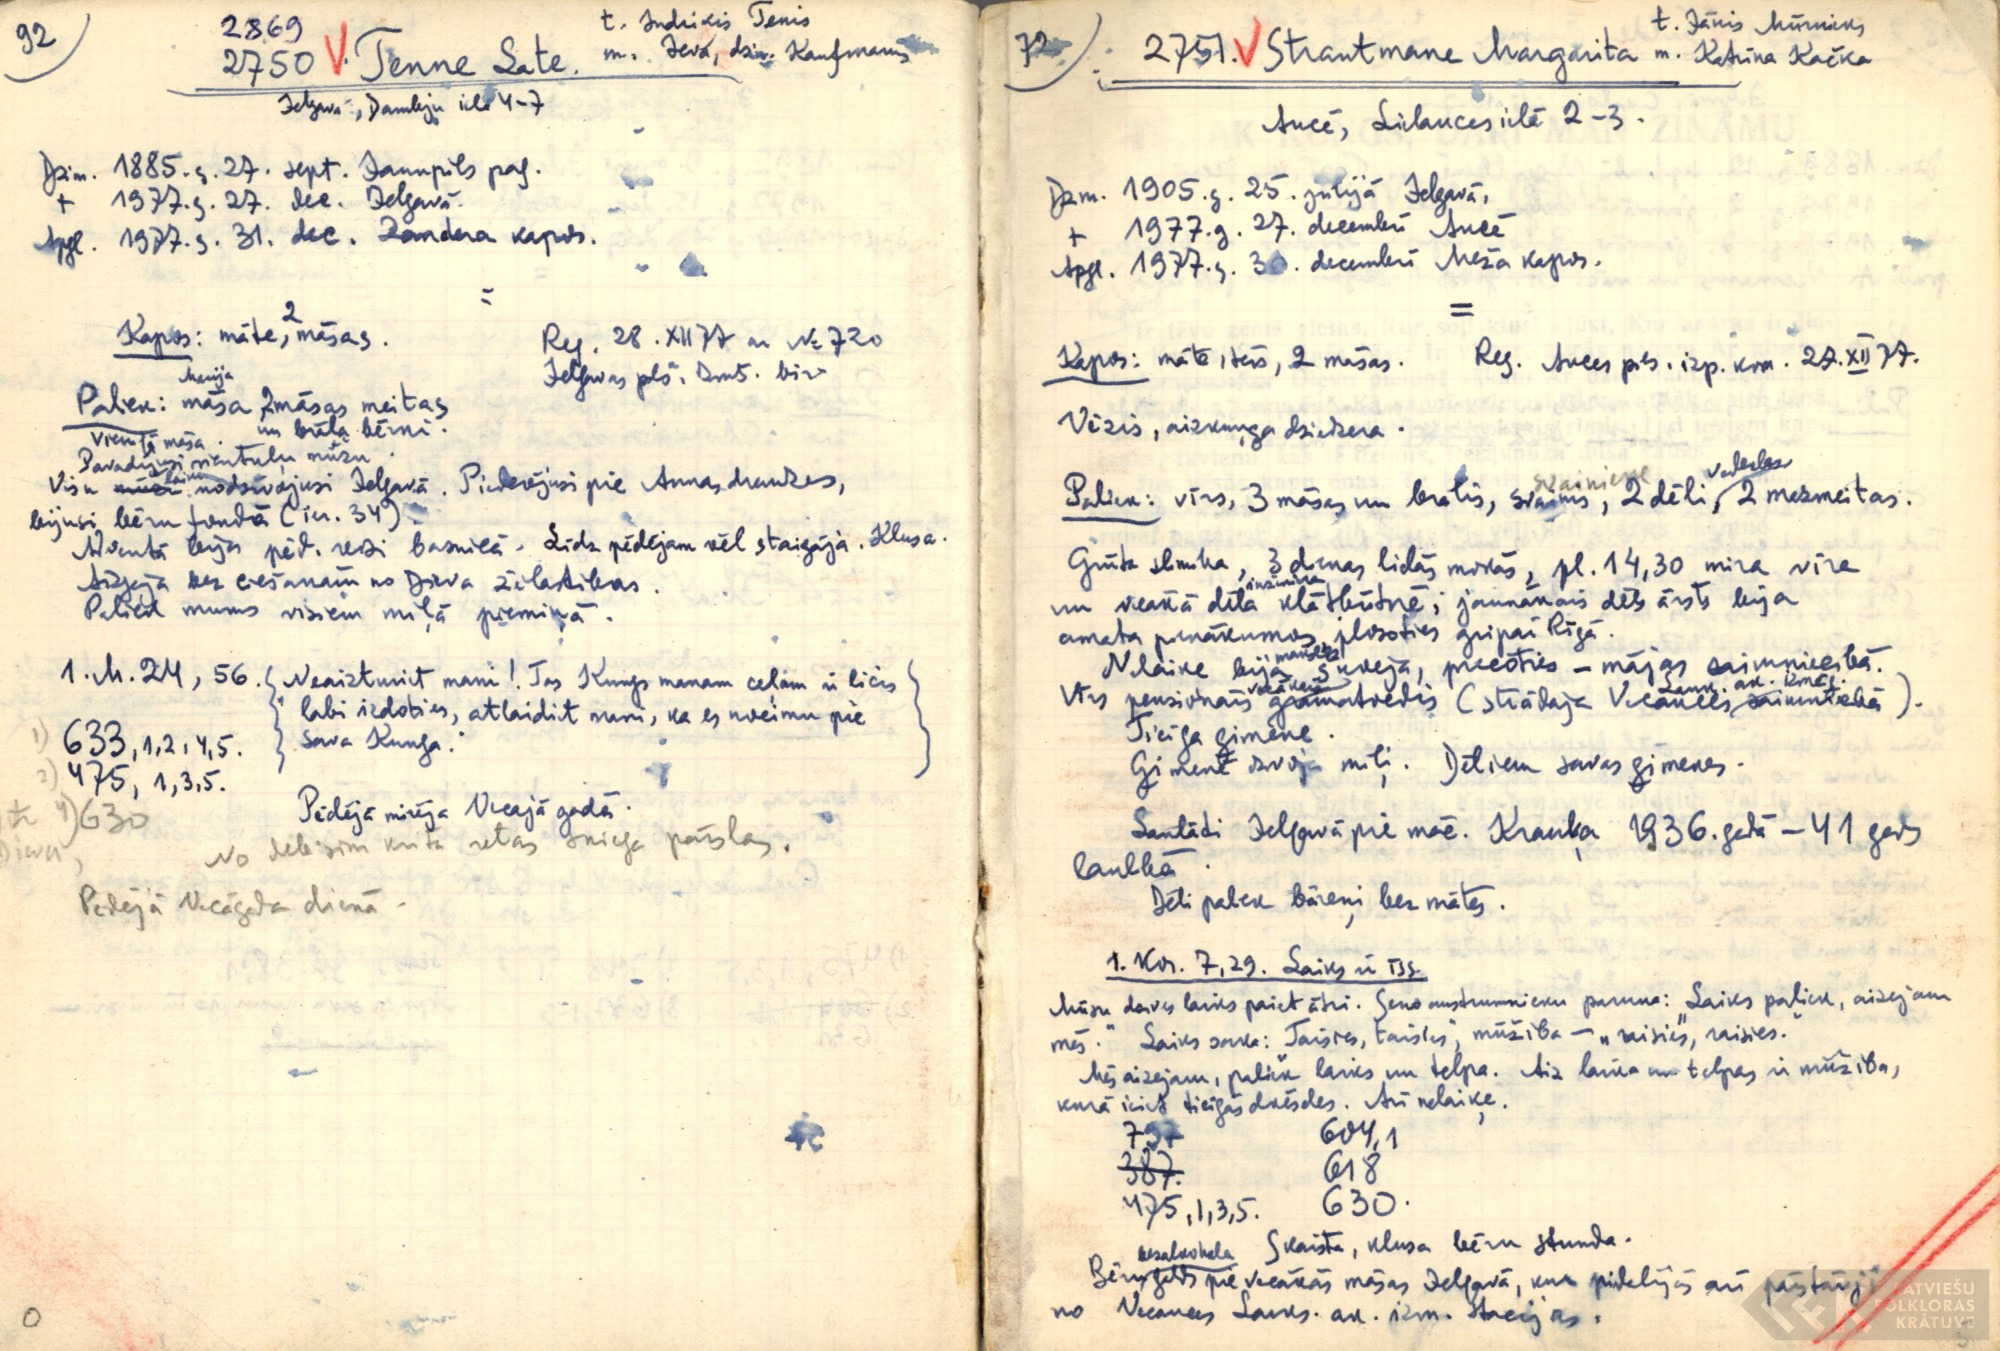 92)
2869
2750 V. Tenne Late.
t. Indriķis Tenis
m. Ieva, dzim. Kaufmanis
Jelgavā, Dambju ielā 4-7
Dzim. 1885.g. 27. sept. Jaunpils pag.
+ 1977.g. 27. dec. Jelgavā.
Apgl. 1977.g. 31. dec. Zandera kapos.
=
Kapos: māte, 2 māsas.
Reg. 28.XII 77 ar № 720
Jelgavas pils. Dzmt. bir.
Paliek: māsa Marija, 2 māsas meitas
un brāļa bērni.
Vienīgā māsa.
Pavadījusi vientuļu mūžu.
Visu laiku nodzīvojusi Jelgavā. Piederējusi pie Annas draudzes,
bijusi bēru fondā (ier. 34).
Adventā bija pēd. reizi baznīcā. Līdz pēdējam vēl staigāja. Klusa.
Aizgāja bez ciešanām no Dieva žēlastības.
Paliek mums visiem mīļā piemiņā.
1.M.24, 56. { Neaizturiet mani! Tas Kungs manam ceļam ir licis
labi izdoties, atlaidiet mani, ka es noeimu pie
sava Kunga. }
1) 633, 1,2,4,5.
2) 475, 1,3,5.
4) 630
Pēdējā mirēja Vecajā gadā.
No debesīm krita retas sniega pārslas.
Pēdējā Vecāgada dienā.
0
72)
2751. V Strautmane Margarita
t. Jānis Mūrnieks
m. Katrīna Kačka
Aucē, Lielauces ielā 2-3.
Dzim. 1905.g. 25. jūlijā Jelgavā,
+ 1977.g. 27. decembrī Aucē
Apgl. 1977.g. 30. decembrī Meža kapos.
=
Kapos: māte, tēvs, 2 māsas.
Reg. Auces pils. izp. kom. 27.XII 77.
Vēzis, aizkuņģa dziedzera.
Paliek: vīrs, 3 māsas un brālis, svainis, svainiene, 2 dēli, vedeklas, 2 mazmeitas.
Grūta slimība, 3 dienas lielās mokās, pl. 14,30 mira vīra
un vecākā dēla inženiera klātbūtnē; jaunākais dēls ārsts bija
amata pienākumos, plosoties gripai Rīgā.
Nelaiķe bija šuvēja, precoties - mājas saimniecībā.
Vīrs pensionārs vecākais grāmatvedis (strādāja Vecauces Lauks. ak. izmēģ. saimniecībā).
Ticīga ģimene.
Ģimenē dzīvoja mīļi. Dēliem savas ģimenes.
Laulāti Jelgavā pie māc. Krauķa 1936. gadā - 41 gads
laulībā.
Dēli paliek bāreņi bez mātes.
1. Kor. 7,29. Laiks ir īss.
Mūsu dzīves laiks paiet ātri. Seno austrumnieku paruna: "Laiks paliek, aizejam
mēs." Laiks saka: "Taisies, taisies", mūžība - "raisies, raisies."
Mēs aizejam, paliek laiks un telpa. Aiz laika un telpas ir mūžība,
kurā ieiet ticīgās dvēseles. Arī nelaiķe.
797
387.
475, 1,3,5.
604,1
618
630.
Skaista, klusa bēru stunda.
Bezalkohola
Bēru galds pie vecākās māsas Jelgavā, kur piedalījās arī pārstāvji
no Vecauces Lauks. ak. izm. stacijas.
LATVIEŠU
FOLKLORAS
KRĀTUVE